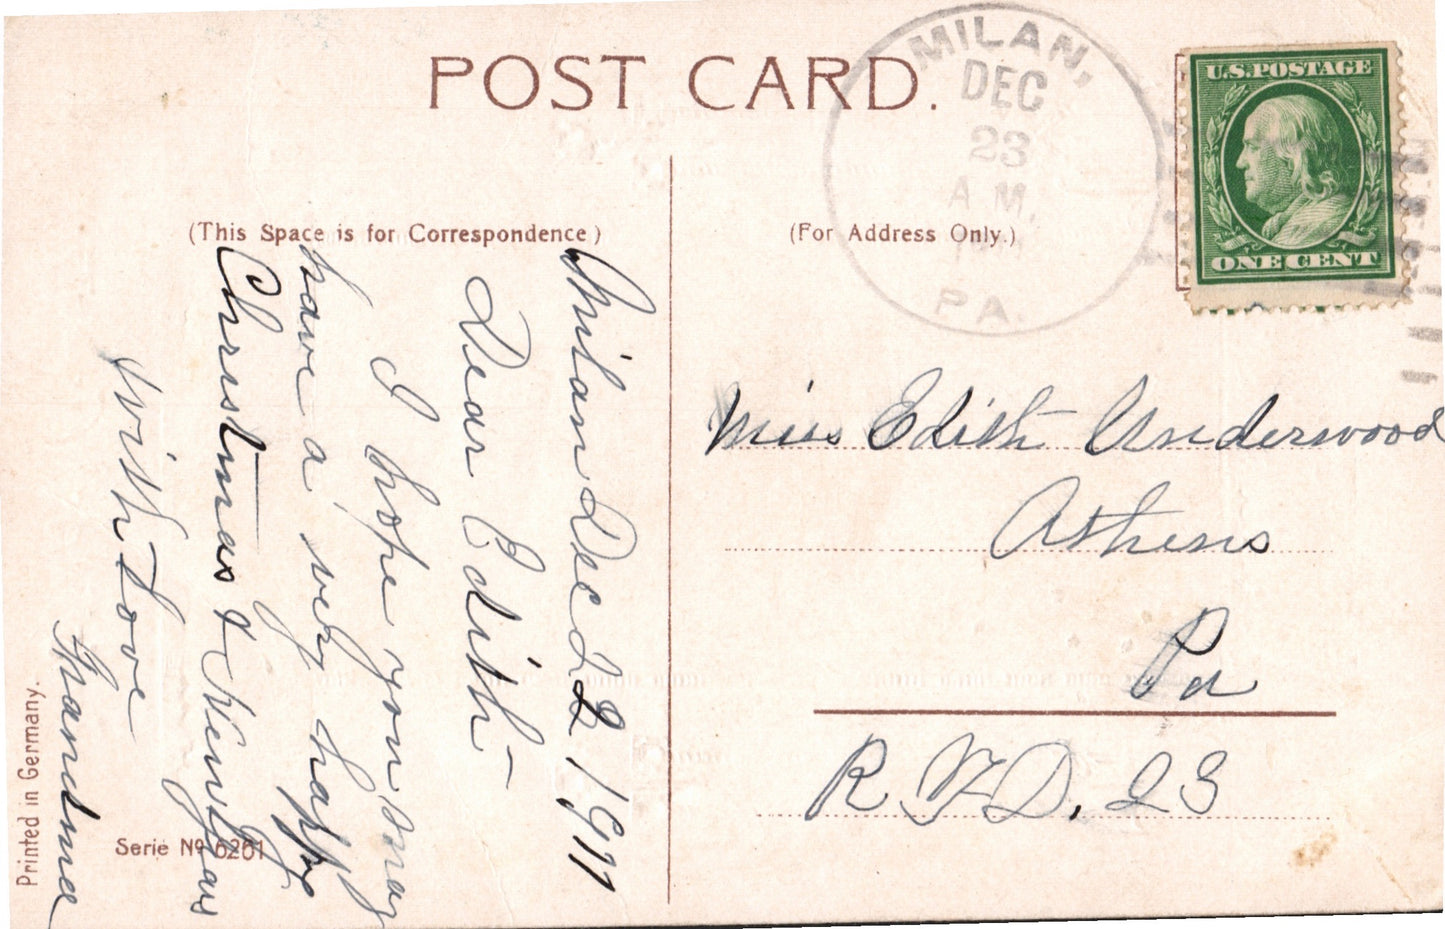 POST CARD.
(This Space is for Correspondence)
(For Address Only.)
MILAN,
DEC
23
A M.
PA.
U.S. POSTAGE
ONE CENT
Milan Dec 22 1911
Dear Edith -
I hope you may
have a very happy
Christmas & New Year
With Love
Grandma
Miss Edith Underwood
Athens
Pa
R.F.D. 23
Printed in Germany.
Serie No 6261